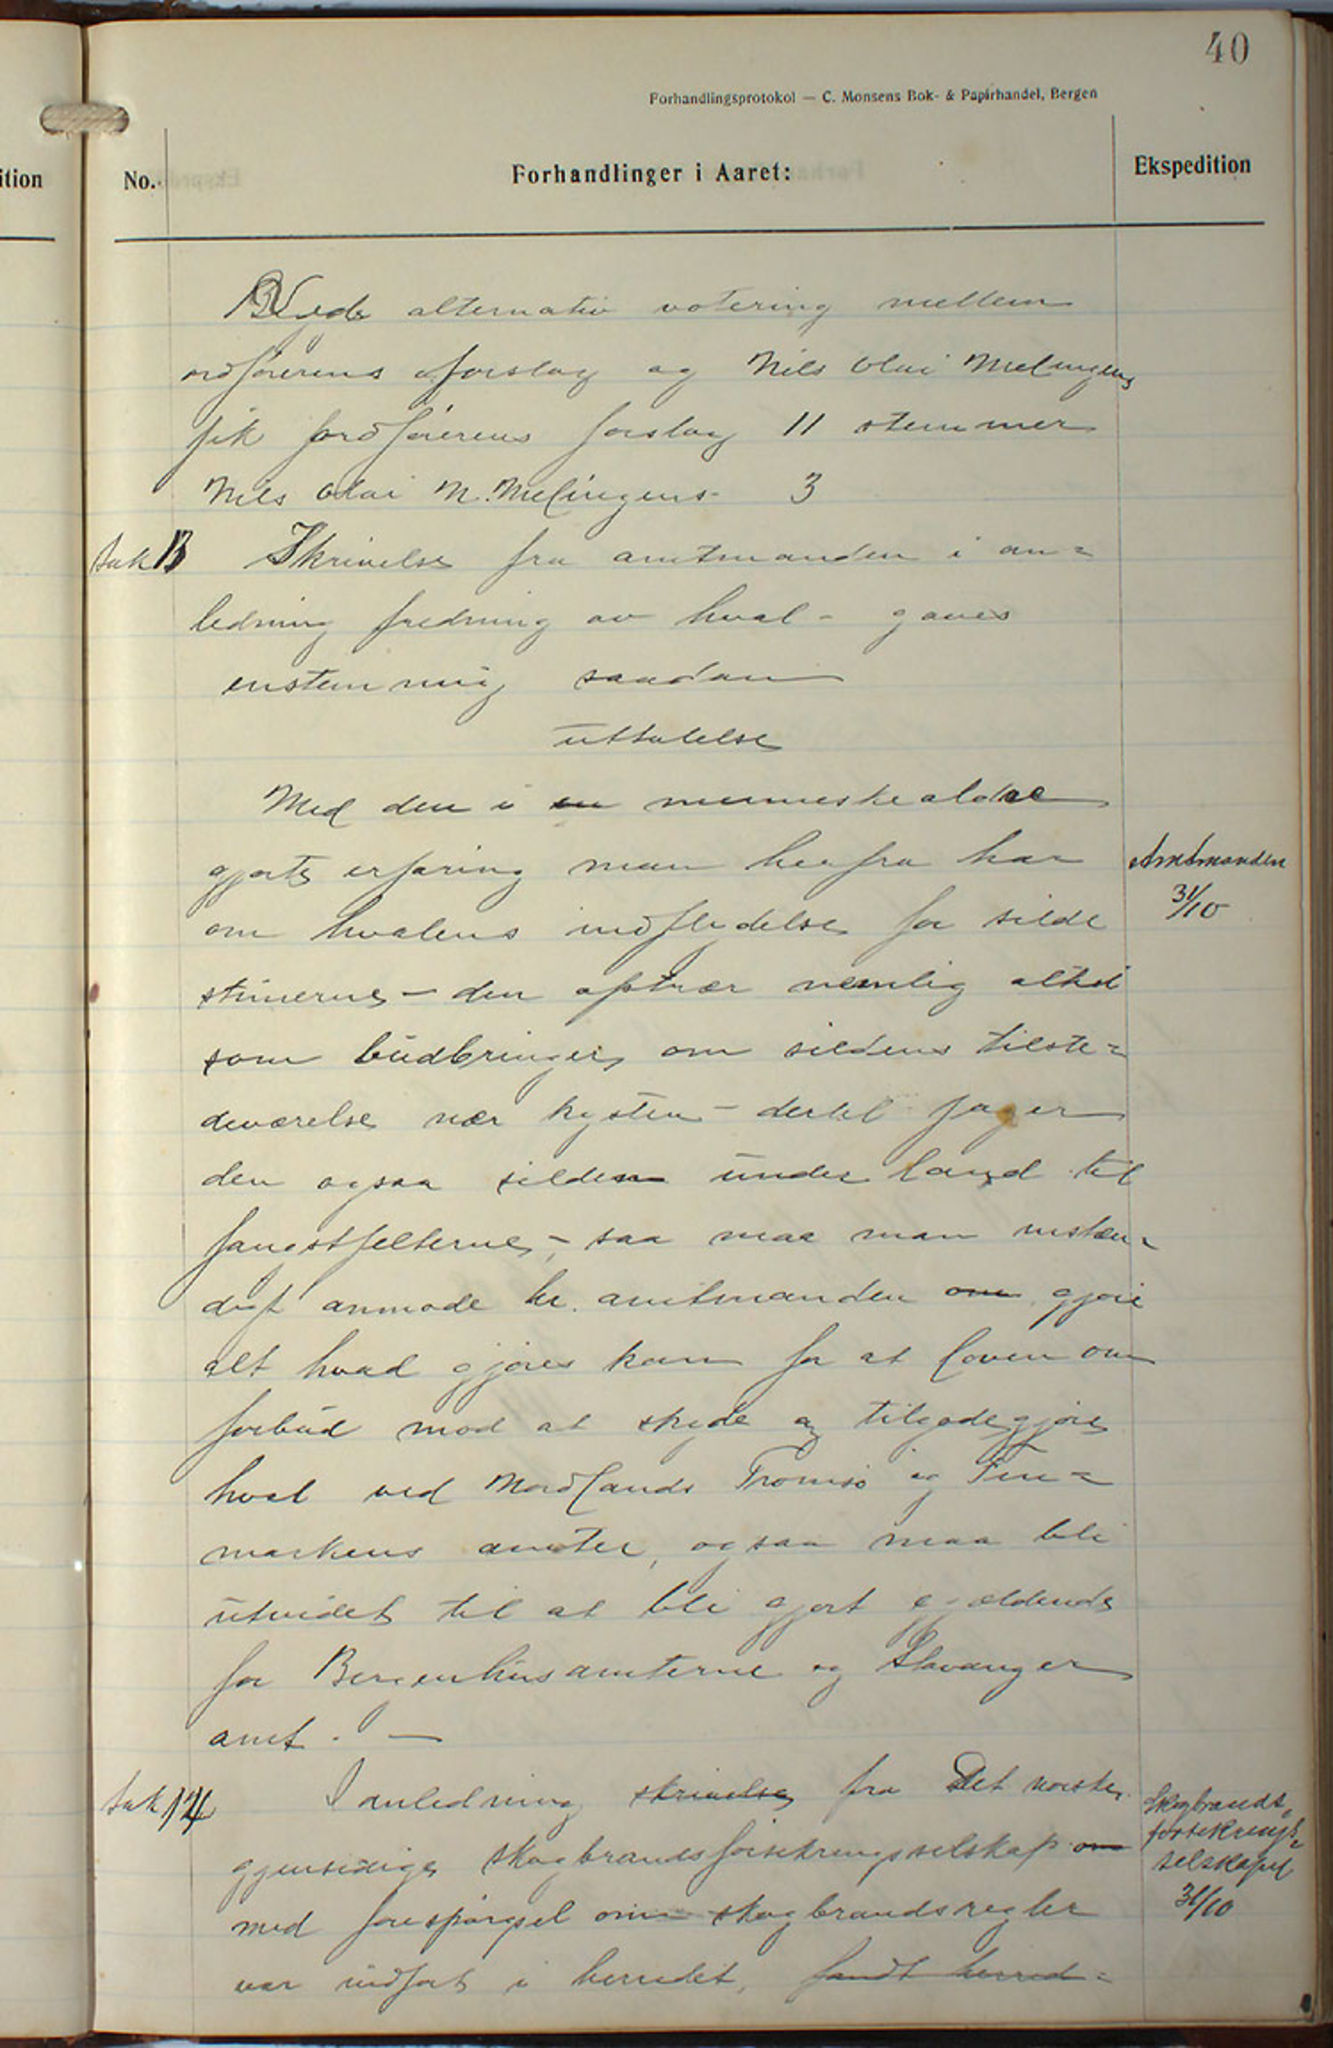 40
Forhandlingsprotokol — C. Monsens Bok- & Papirhandel, Bergen
ition
No.
Forhandlinger i Aaret:
Ekspedition
Vede alternativ votering mellem
ordførerens forslag og Nils Olai Melingens
fik ordførerens forslag 11 stemmer
Nils Olai N. Melingens - 3
Sak 13 Skrivelse fra amtmanden i an=
ledning fredning av hval - gaves
enstemmig saadan
uttalelse
Med den i en menneskealder
gjorte erfaring man herfra har
om hvalens indflydelse for silde
stimerne - den optrær nemlig altid
som budbringer om sildens tilste=
deværelse nær kysten - dertil jager
den ogsaa silden under land til
fangstfelterne, - saa maa man instæn=
digt anmode hr. amtmanden om gjøre
alt hvad gjøres kan for at loven om
forbud mod at skyde og tilgodegjøre
hval ved Nordlands Tromsø og Fin=
markens amter, ogsaa maa bli
utvidet til at bli gjort gjældende
for Bergenhusamterne og Stavanger
amt. -
Amtmanden
31/10
Sak 14 I anledning skrivelse fra Det norske
gjensidige skogbrandsforsikringsselskap om
med forespørgsel om skogbrandsregler
var indført i herredet, fandt herred=
Skogbrands=
forsikrings=
selskapet
31/10